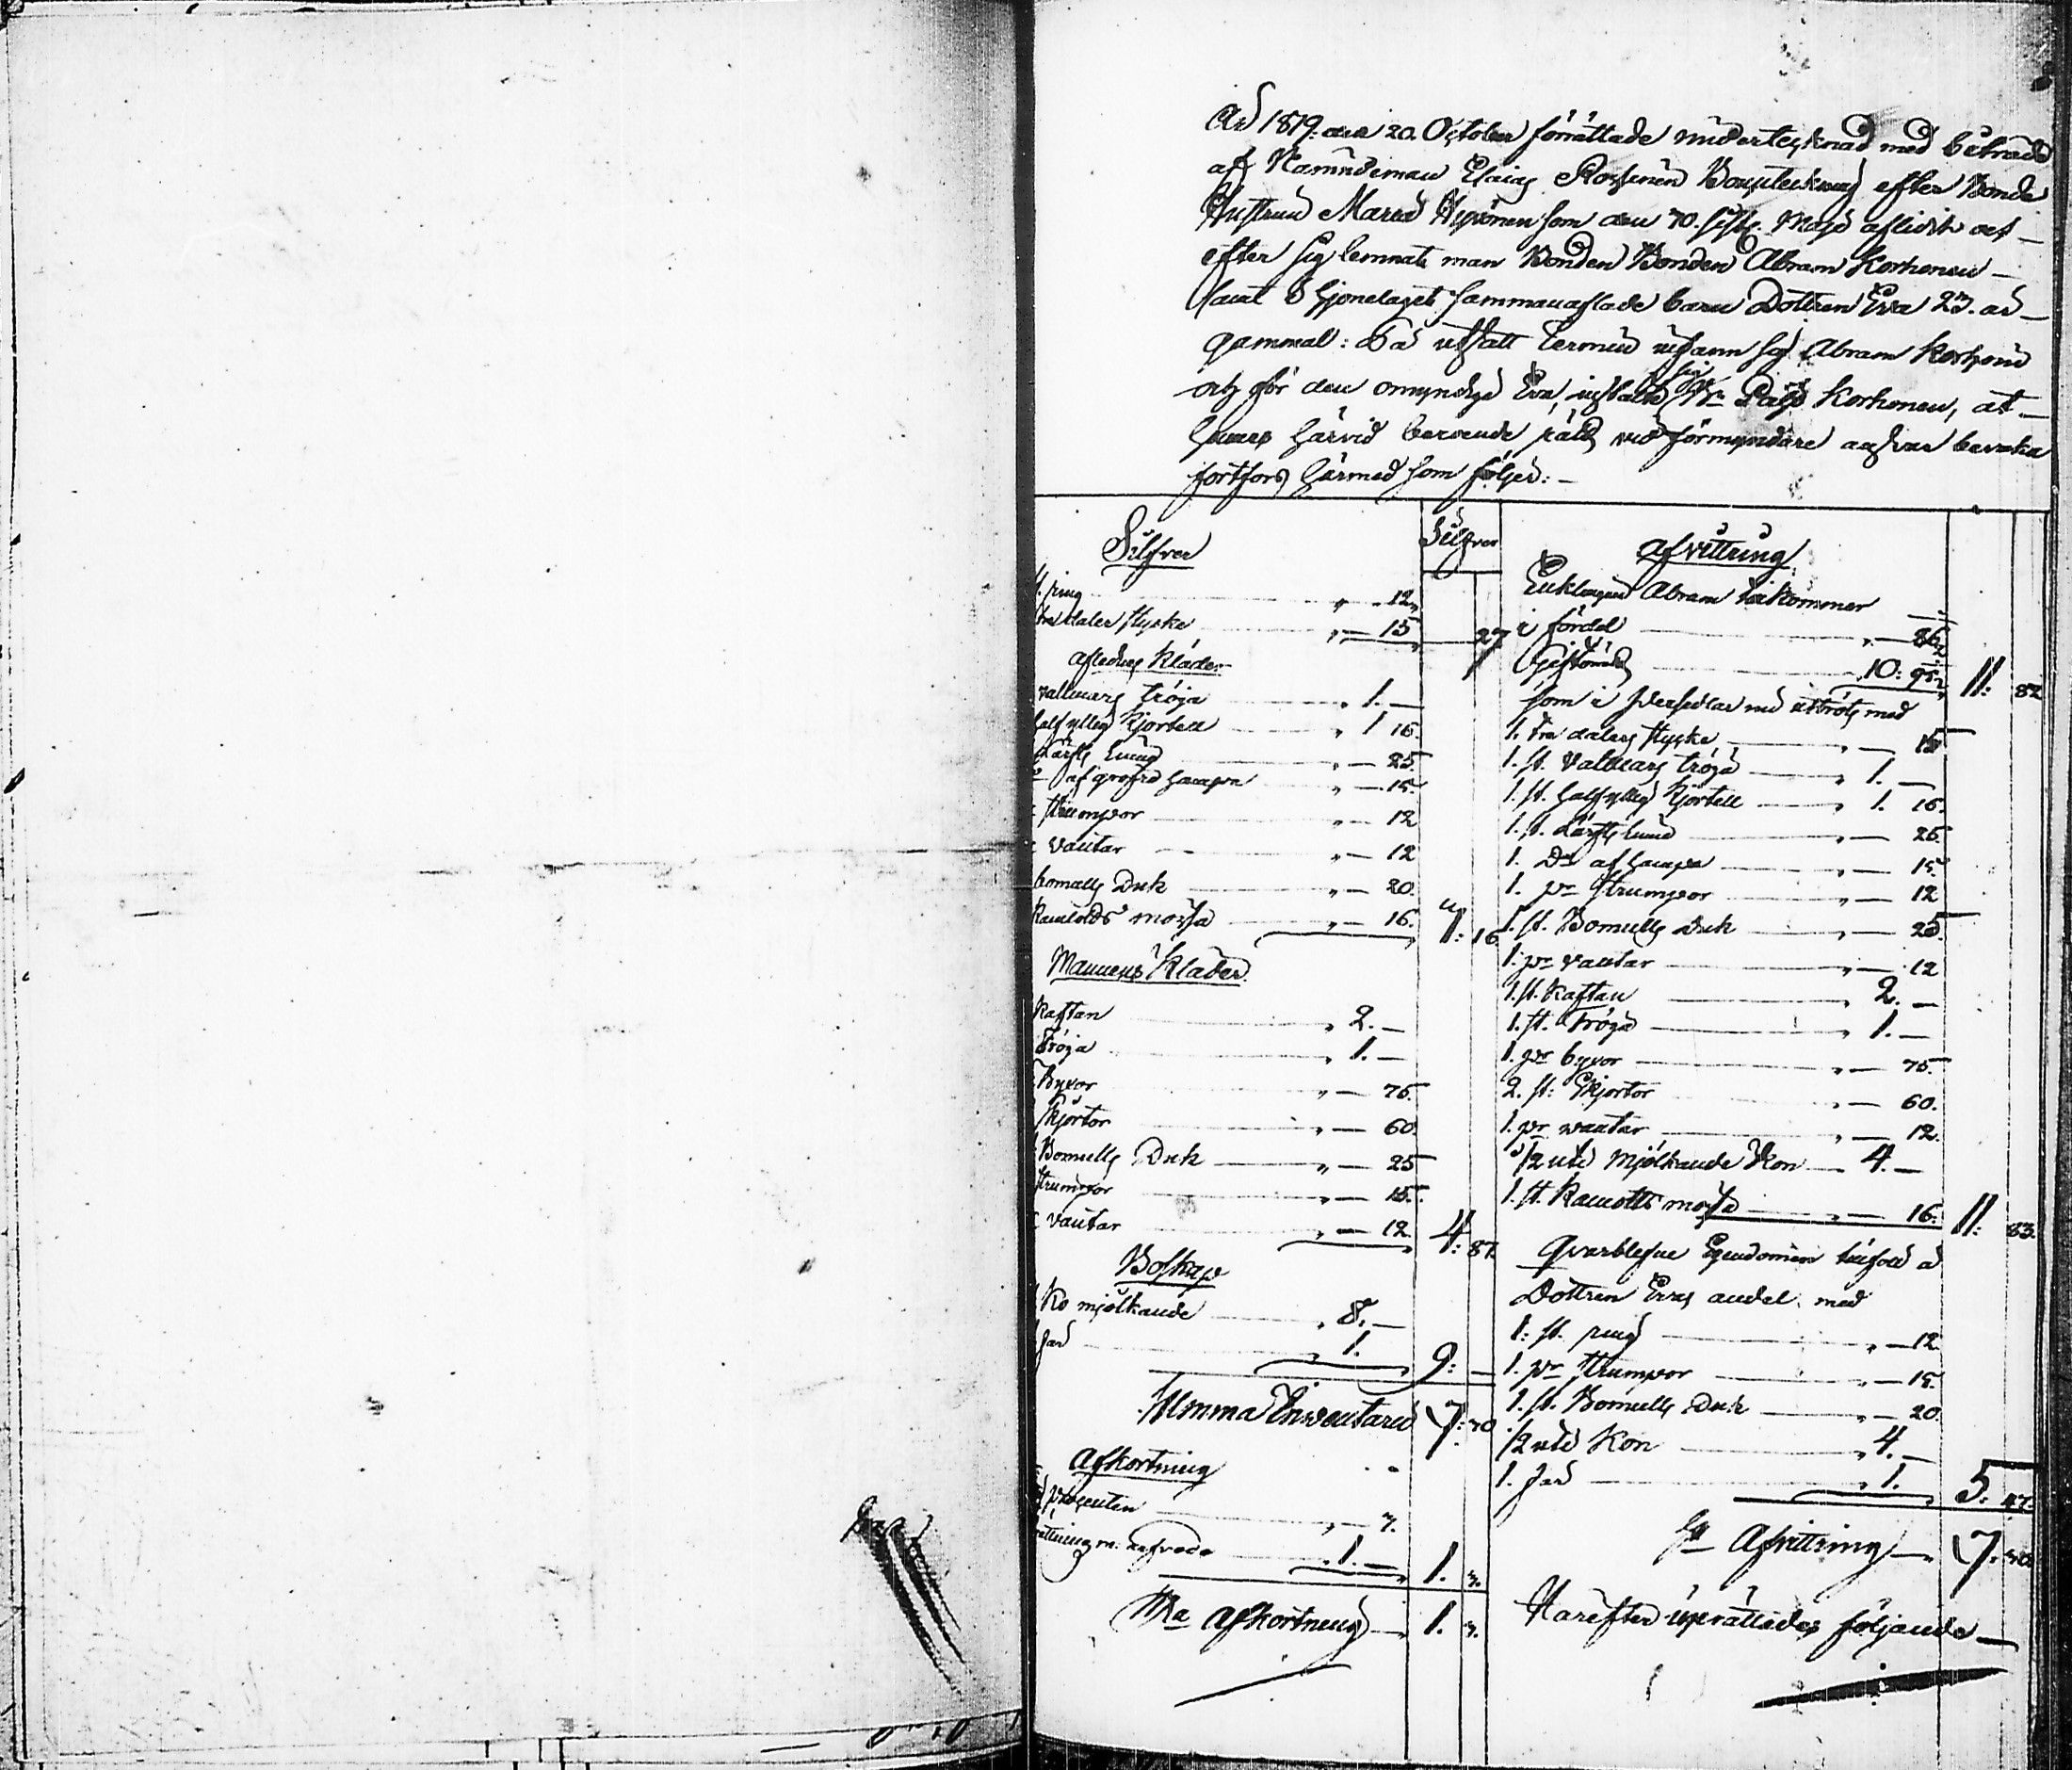 År 1819. den 20. October förrättade undertecknad med biträde
af Nämndeman Elaias Bouptekning efter Bonde
Hustrun Maria som den 10. sistl. Maji aflidit och
efter sig lemnat man Bonden Bonden Abram Korhonen
samt i Hjonelaget sammanaflade barn Dottren Eva 23. år
gammal: På utsatt termin infann sig Abram Korhonen
och för den omyndige Eva, Påhl Korhonen, at
hennes härvid beroende rätt vid förmyndare answar bevaka
fortfors härmed som följer:
Silfver
Silfver
1. ring " 12.
tre daler stycke " — 15 27
aflednes Kläder
vallmars tröja " 1. —
halfylleg Kjortell " 1 16.
Lärfts " — 25.
af hampa " — 15.
strumpor " — 12
vantar " — 12
bomulls Duk " — 20.
Kamlotts mössa " — 16. 4: 16
Mannens Kläder.
Kaftan " 2. —
Tröja " 1. —
Byxor " — 75.
Skjortor " — 60.
Bomulls Duk " — 25
strumpor " — 15.
vantar " — 12. 4: 87.
Boskap
Ko mjölkande " 8. —
får " 1. 9: —
Summa Inventarii 70
Afkortning
procenten " — 7.
1. — 1. 7.
S:ma afkortning 1. 7.
Afvittring
Enklingen Abram tilkommer
i fördel " — 86
Giftorätt 10: 95 11: 82
som i Persedlar med
1. tre dalers stycke " — 15
1. st. Vallmars tröja " 1. —
1. st. halfylleg Kjortell " 1. 16.
1. st. Lärfts " — 25.
1. D:o af hampa " — 15.
1. p:r strumpor " — 12
1. st. Bomulls Duk " — 25.
1. p:r vantar " — 12
1. st. Kaftan " 2. —
1. st. Tröja " 1. —
1. p:r byxor " — 75.
2. st: Skjortor " — 60.
1. pr wantar " — 12.
1/2 uti Mjölkande Kon 4. —
1. st. Kamlotts mössa " — 16. 11: 83.
Qvarblefne Egendomen tilföll å
Dottren Evas andel. med
1: st. ring " — 12.
1. p:r strumpor " — 15.
1. st. Bomulls Duk " — 20.
1/2 uti Kon " 4. —
1. får " 1. 5. 47.
S:a Afvittring
Härefter uprättades följande